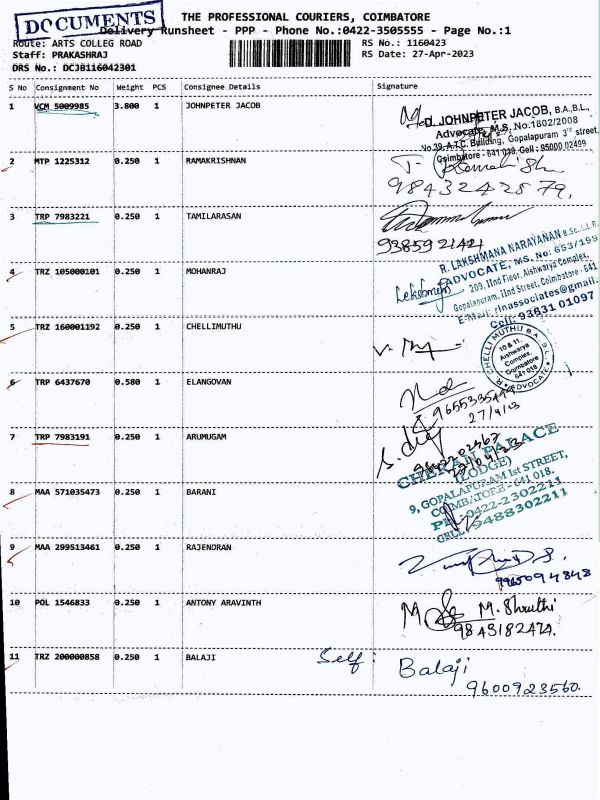 DOCUMENTS
THE PROFESSIONAL COURIERS, COIMBATORE
Delivery Runsheet - PPP - Phone No.:0422-3505555 - Page No.:1
Route: ARTS COLLEG ROAD
RS No.: 1160423
Staff: PRAKASHRAJ
RS Date: 27-Apr-2023
DRS No.: DCJB116042301
S No Consignment No Weight PCS Consignee Details Signature
1 VCM 5009985 3.800 1 JOHNPETER JACOB
D. JOHNPETER JACOB, B.A.,B.L.,
Advocate, M.S. No:1802/2008
No.39, A.T.C. Building, Gopalapuram 3rd street,
Coimbatore - 641 018, Cell : 95000 02499
2 MTP 1225312 0.250 1 RAMAKRISHNAN
9843242879,
3 TRP 7983221 0.250 1 TAMILARASAN
93859 21421
4 TRZ 105000101 0.250 1 MOHANRAJ
R. LAKSHMANA NARAYANAN B.Sc.,L.L.B.
ADVOCATE, MS. No: 653/199
209, IInd Floor, Aishwarya Complex,
Gopalapuram, IInd Street, Coimbatore - 641
E-Mail : rlnassociates@gmail.
Cell: 93631 01097
5 TRZ 160001192 0.250 1 CHELLIMUTHU
R. CHELLI MUTHU B.A., B.L.
10 & 11,
Aishwarya
Complex,
Coimbatore
641 018
ADVOCATE
6 TRP 6437670 0.580 1 ELANGOVAN
27/4/23
7 TRP 7983191 0.250 1 ARUMUGAM
CHERAN PALACE
(LODGE)
9, GOPALAPURAM 1st STREET,
COIMBATORE - 641 018.
PH:0422-2302211
CELL:9488302211
8 MAA 571035473 0.250 1 BARANI
9 MAA 299513461 0.250 1 RAJENDRAN
9965094848
10 POL 1546833 0.250 1 ANTONY ARAVINTH
M. Shruthi
9843182474.
11 TRZ 200000858 0.250 1 BALAJI
Self: Balaji
9600923560.